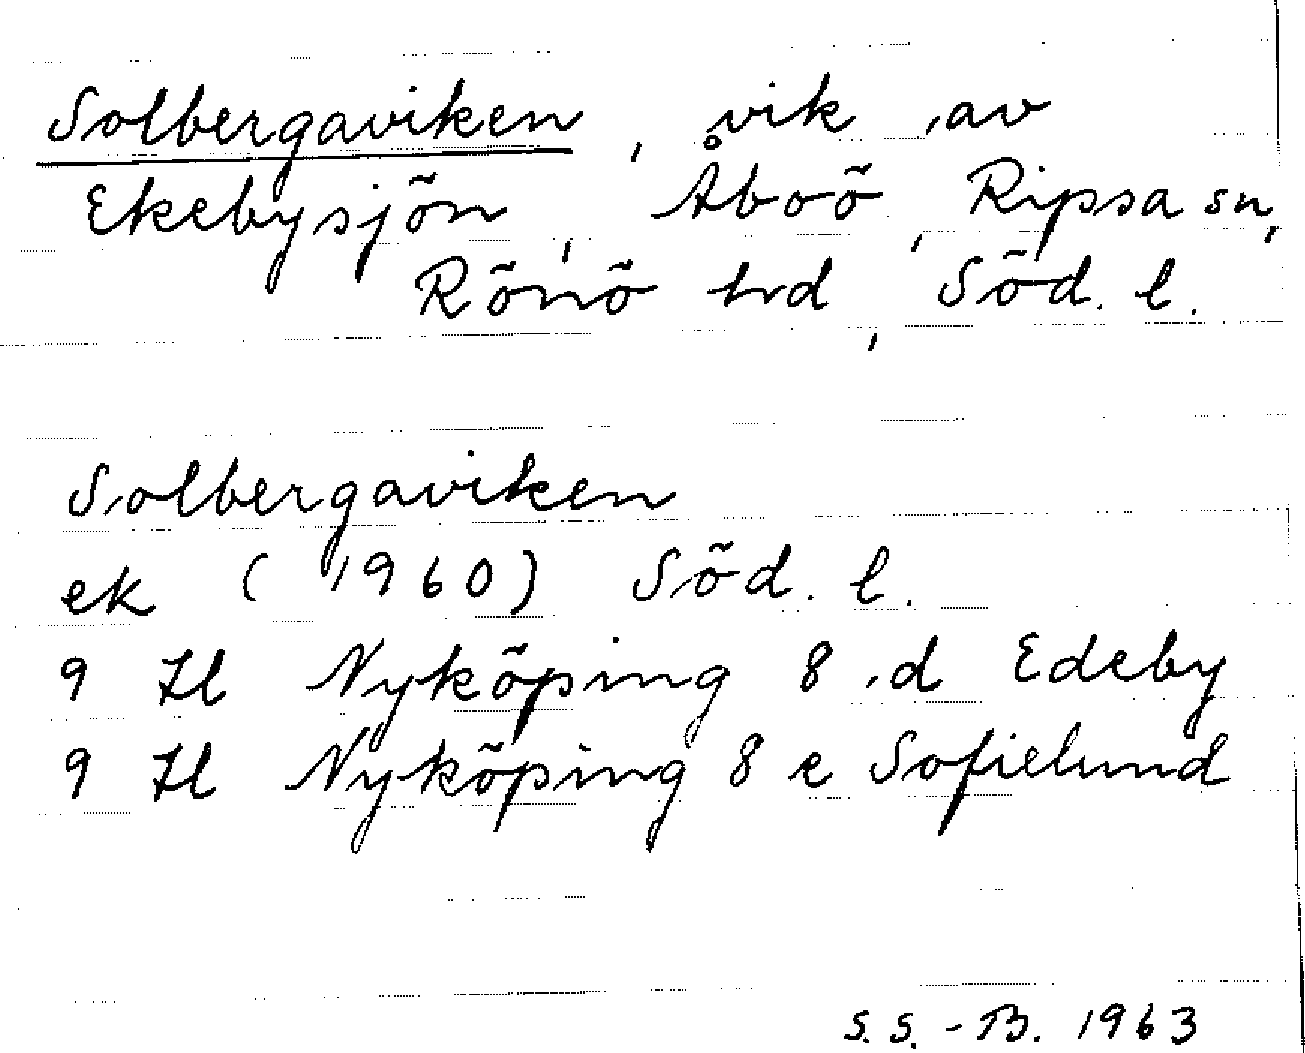 Solbergaviken, vik av
Ekebysjön, Åboö, Ripsa sn,
Rönö hd, Söd. l.
Solbergaviken
ek (1960) Söd. l.
9 H Nyköping 8 d Edeby
9 H Nyköping 8 e Sofielund
S.S.-B. 1963